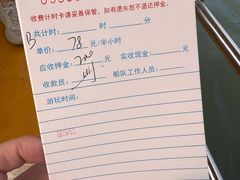 收费计时卡请妥善保管，如有遗失恕不退还押金。
B共计时： 时 分
单价：78 元/半小时
应收押金：200 元 实收现金： 元
收款员： 船队工作人员：
游玩时间：